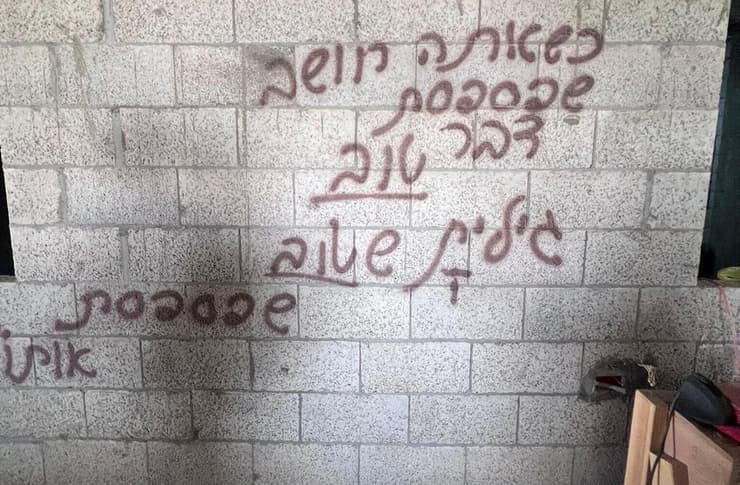 כשאתה חושב
שפספסת
דבר
טוב
גילית שטוב
שפספסת
אותו